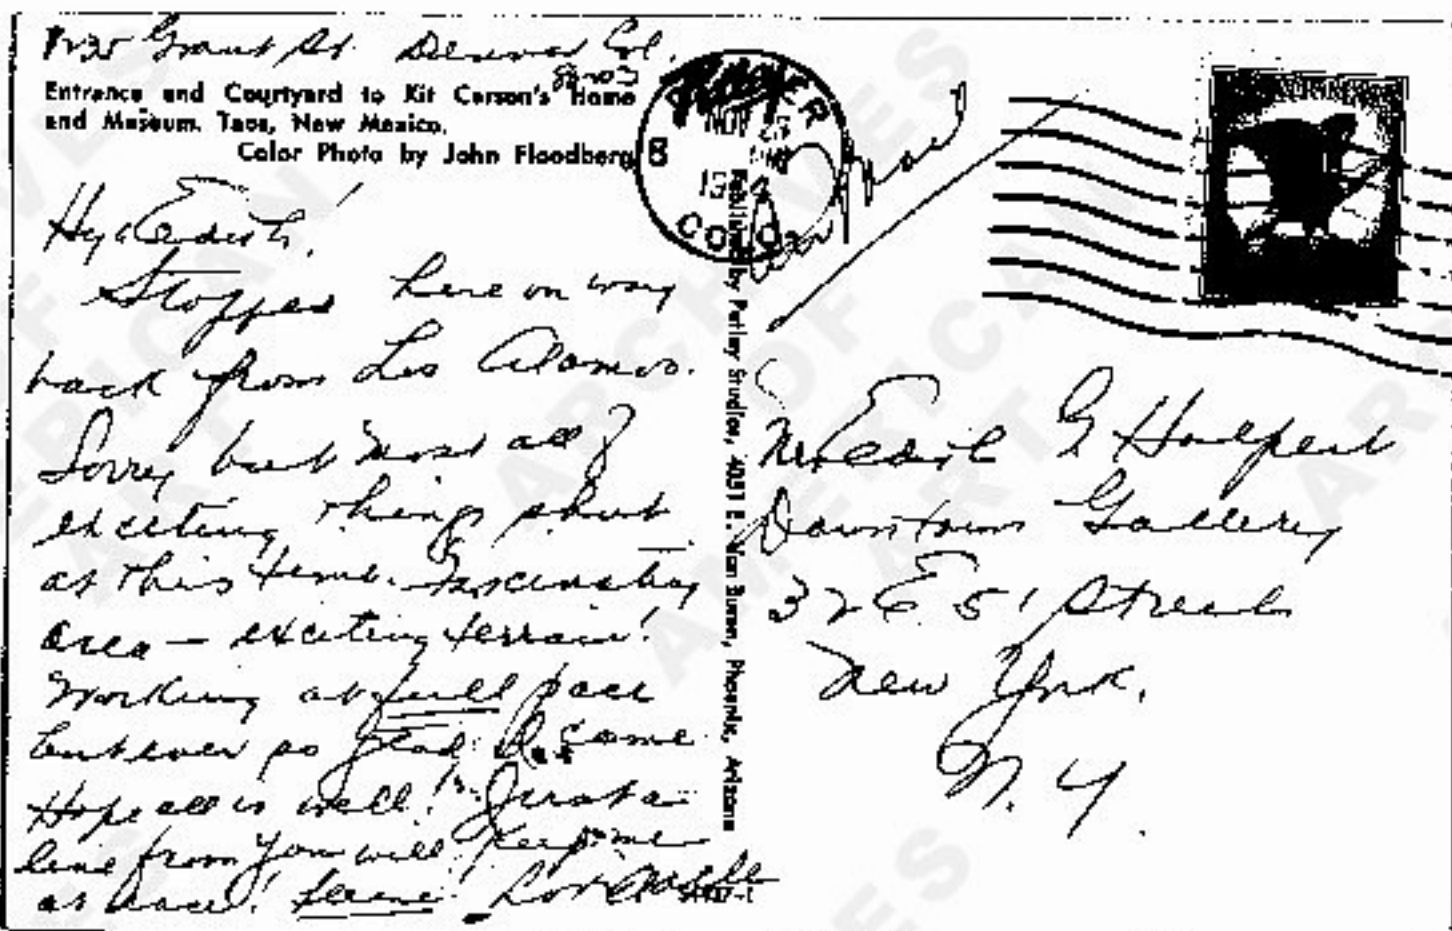 Grant St. Denver Col.
80203
Entrance and Courtyard to Kit Carson's Home
and Museum. Taos, New Mexico.
Color Photo by John Floodberg
Hya Edith!
Stopped here on way
back from Los Alamos.
Sorry but most all
exciting things shut
at this time. Fascinating
area — exciting terrain!
Working at full pace
but ever so glad I came
Hope all is well! Just a
line from you will keep me
at pace!
DENVER
NOV 25
PM
COLO
Published by Petley Studios, 4051 E. Van Buren, Phoenix, Arizona
Edith G Halpert
Downtown Gallery
32 E 51 Street
New York.
N. Y.
ARCHIVES
OF
AMERICAN
ART